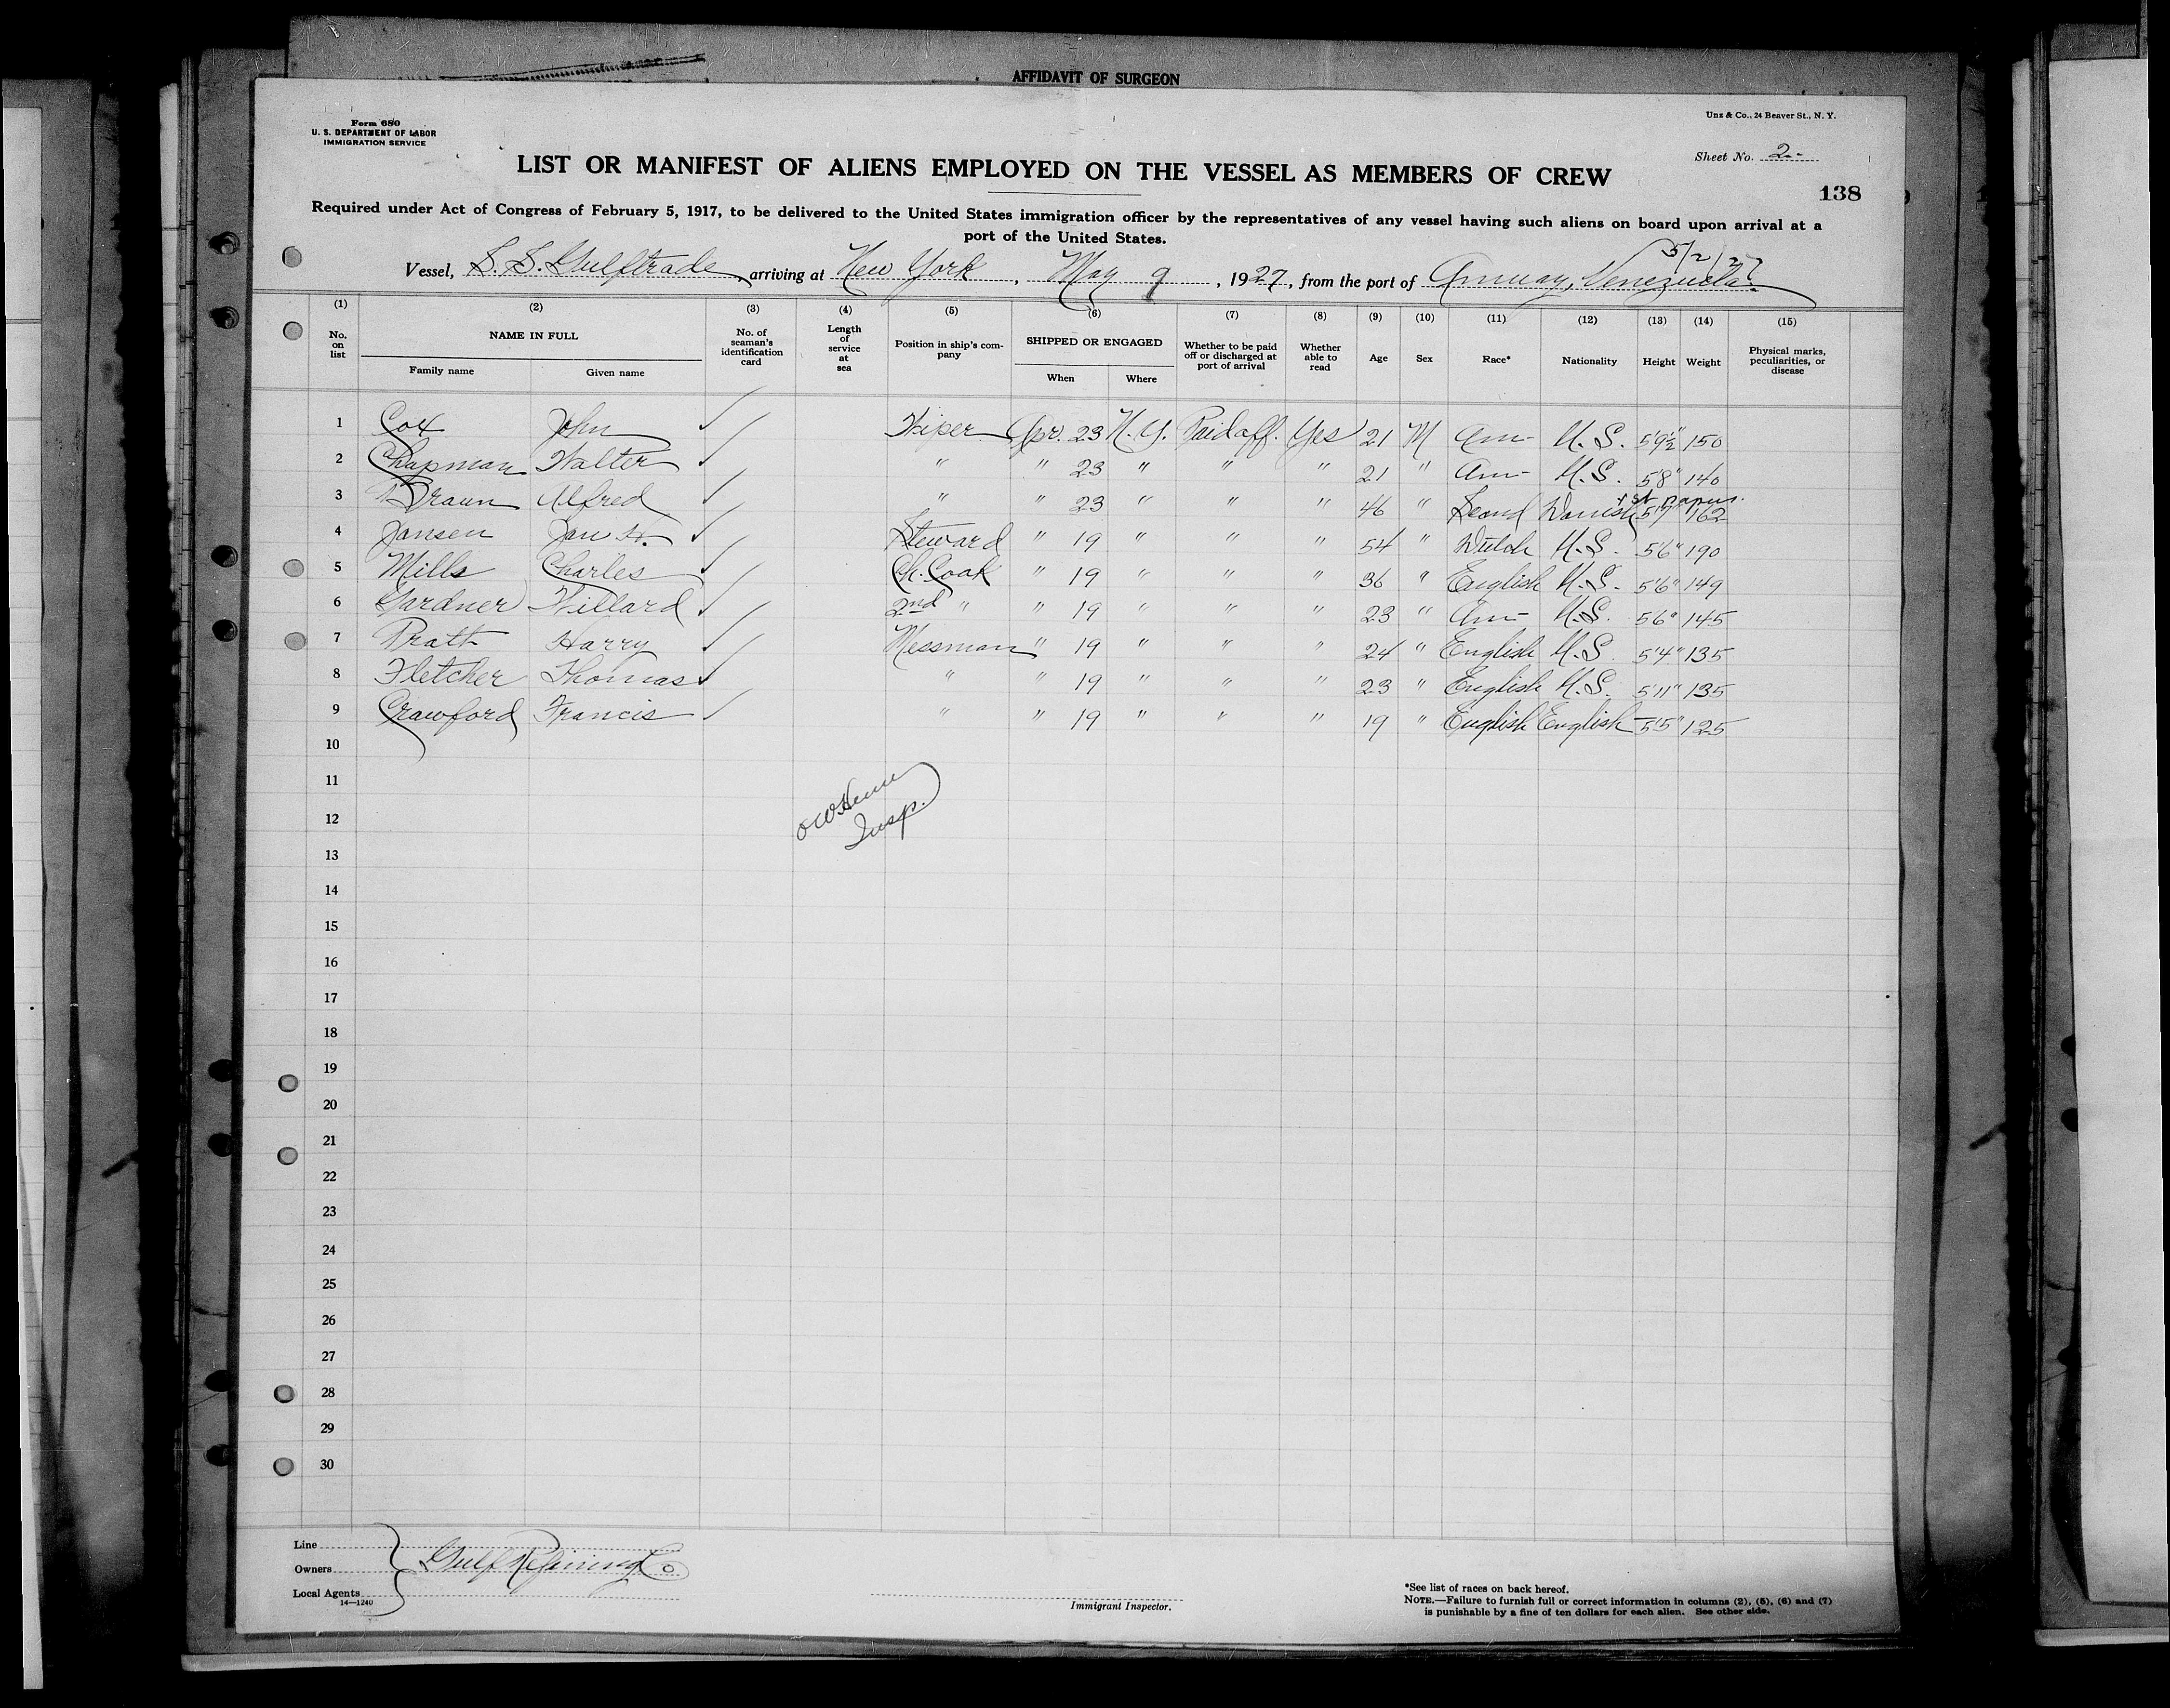 AFFIDAVIT OF SURGEON
Form 680
U. S. DEPARTMENT OF LABOR
IMMIGRATION SERVICE
Unz & Co., 24 Beaver St., N. Y.
Sheet No. 2-
LIST OR MANIFEST OF ALIENS EMPLOYED ON THE VESSEL AS MEMBERS OF CREW
138
Required under Act of Congress of February 5, 1917, to be delivered to the United States immigration officer by the representatives of any vessel having such aliens on board upon arrival at a
port of the United States.
5/2/27
Vessel, S.S. Gulftrade, arriving at New York, May 9, 1927, from the port of Venezuela.
(1) (2) (3) (4) (5) (6) (7) (8) (9) (10) (11) (12) (13) (14) (15)
No. on list NAME IN FULL No. of seaman's identification card Length of service at sea Position in ship's company SHIPPED OR ENGAGED Whether to be paid off or discharged at port of arrival Whether able to read Age Sex Race* Nationality Height Weight Physical marks, peculiarities, or disease
Family name Given name When Where
1 Cox John ✓ Wiper Apr. 23 N.Y. Paid off. Yes 21 M Am- U.S. 5'9½" 150
2 Chapman Walter ✓ " " 23 " " " 21 " Am- U.S. 5'8" 140
1st papers.
3 Braun Alfred ✓ " " 23 " " " 46 " Scand Danish 5'7" 162
4 Jansen Jan H. ✓ Steward " 19 " " " 54 " Dutch U.S. 5'6" 190
5 Mills Charles ✓ Ch. Cook " 19 " " " 36 " English U.S. 5'6" 149
6 Gardner Willard ✓ 2nd " " 19 " " " 23 " Am- U.S. 5'6" 145
7 Pratt Harry ✓ Messman " 19 " " " 24 " English U.S. 5'4" 135
8 Fletcher Thomas ✓ " " 19 " " " 23 " English U.S. 5'11" 135
9 Crawford Francis ✓ " " 19 " " " 19 " English English 5'5" 125
10
11
12
Insp.
13
14
15
16
17
18
19
20
21
22
23
24
25
26
27
28
29
30
Line
Owners Gulf Refining Co.
Local Agents
14—1240
Immigrant Inspector.
*See list of races on back hereof.
NOTE.—Failure to furnish full or correct information in columns (2), (5), (6) and (7)
is punishable by a fine of ten dollars for each alien. See other side.